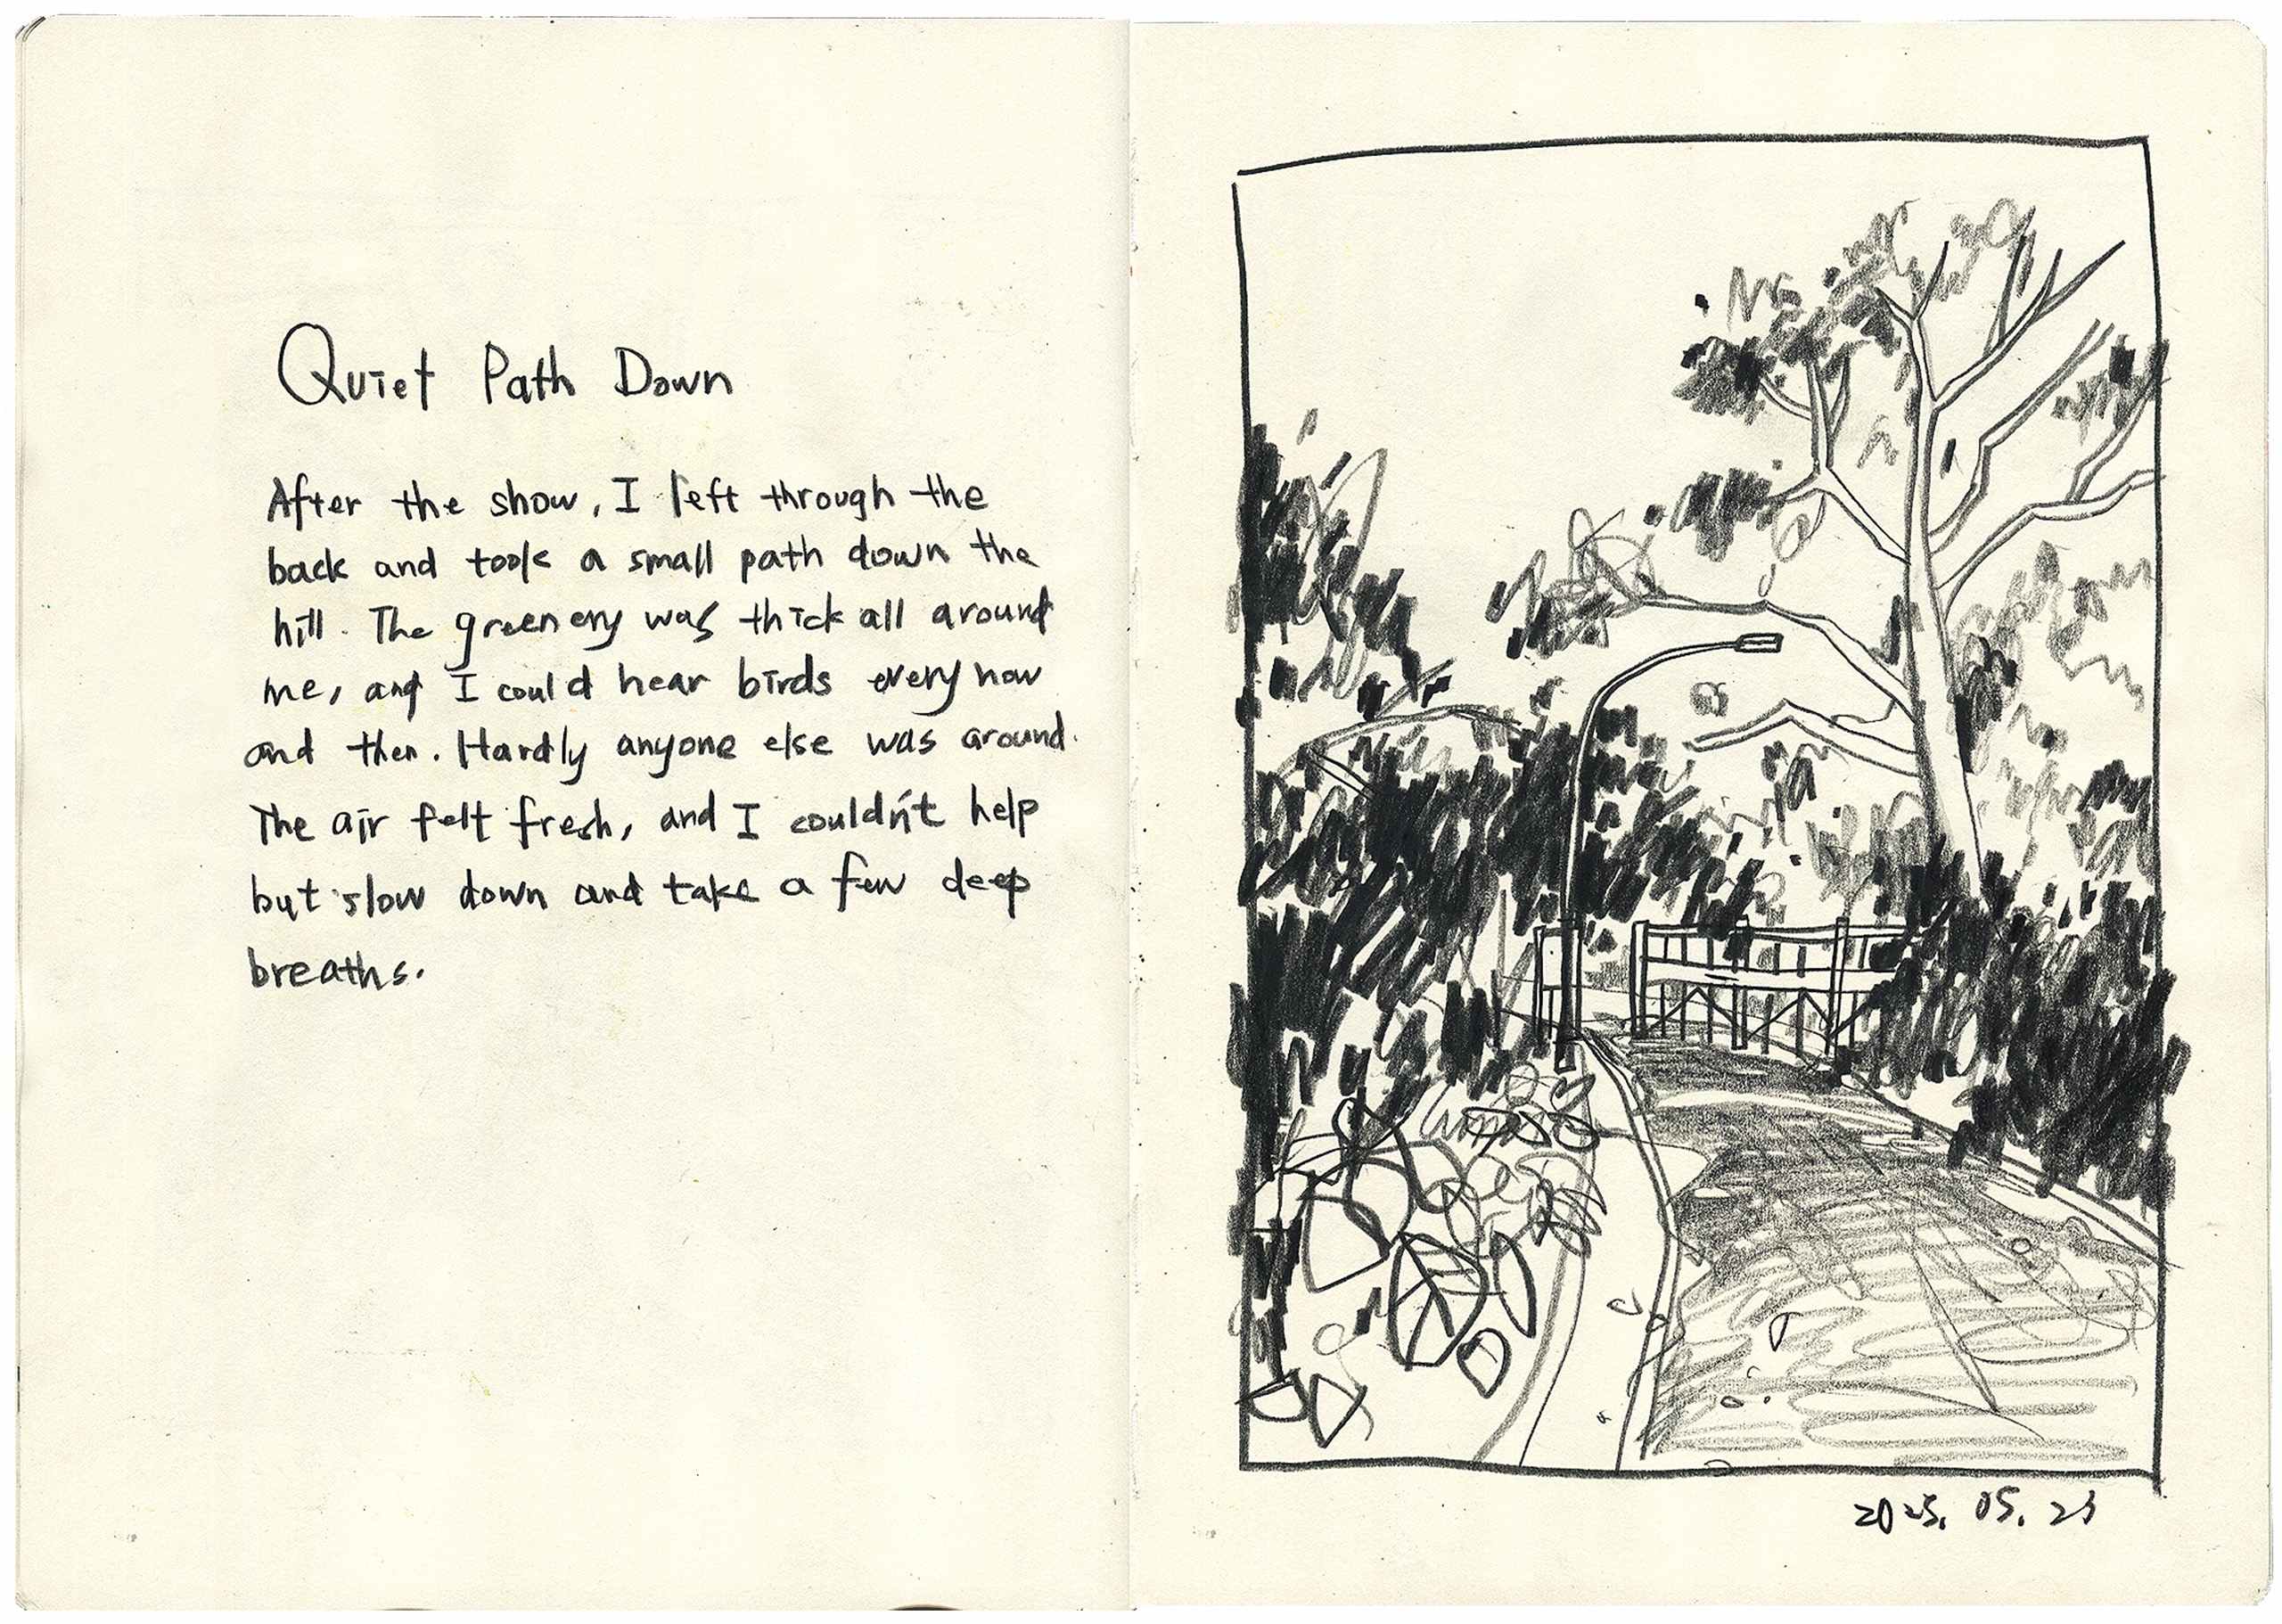 Quiet Path Down
After the show, I left through the
back and took a small path down the
hill. The greenery was thick all around
me, and I could hear birds every now
and then. Hardly anyone else was around.
The air felt fresh, and I couldn't help
but slow down and take a few deep
breaths.
2025. 05.